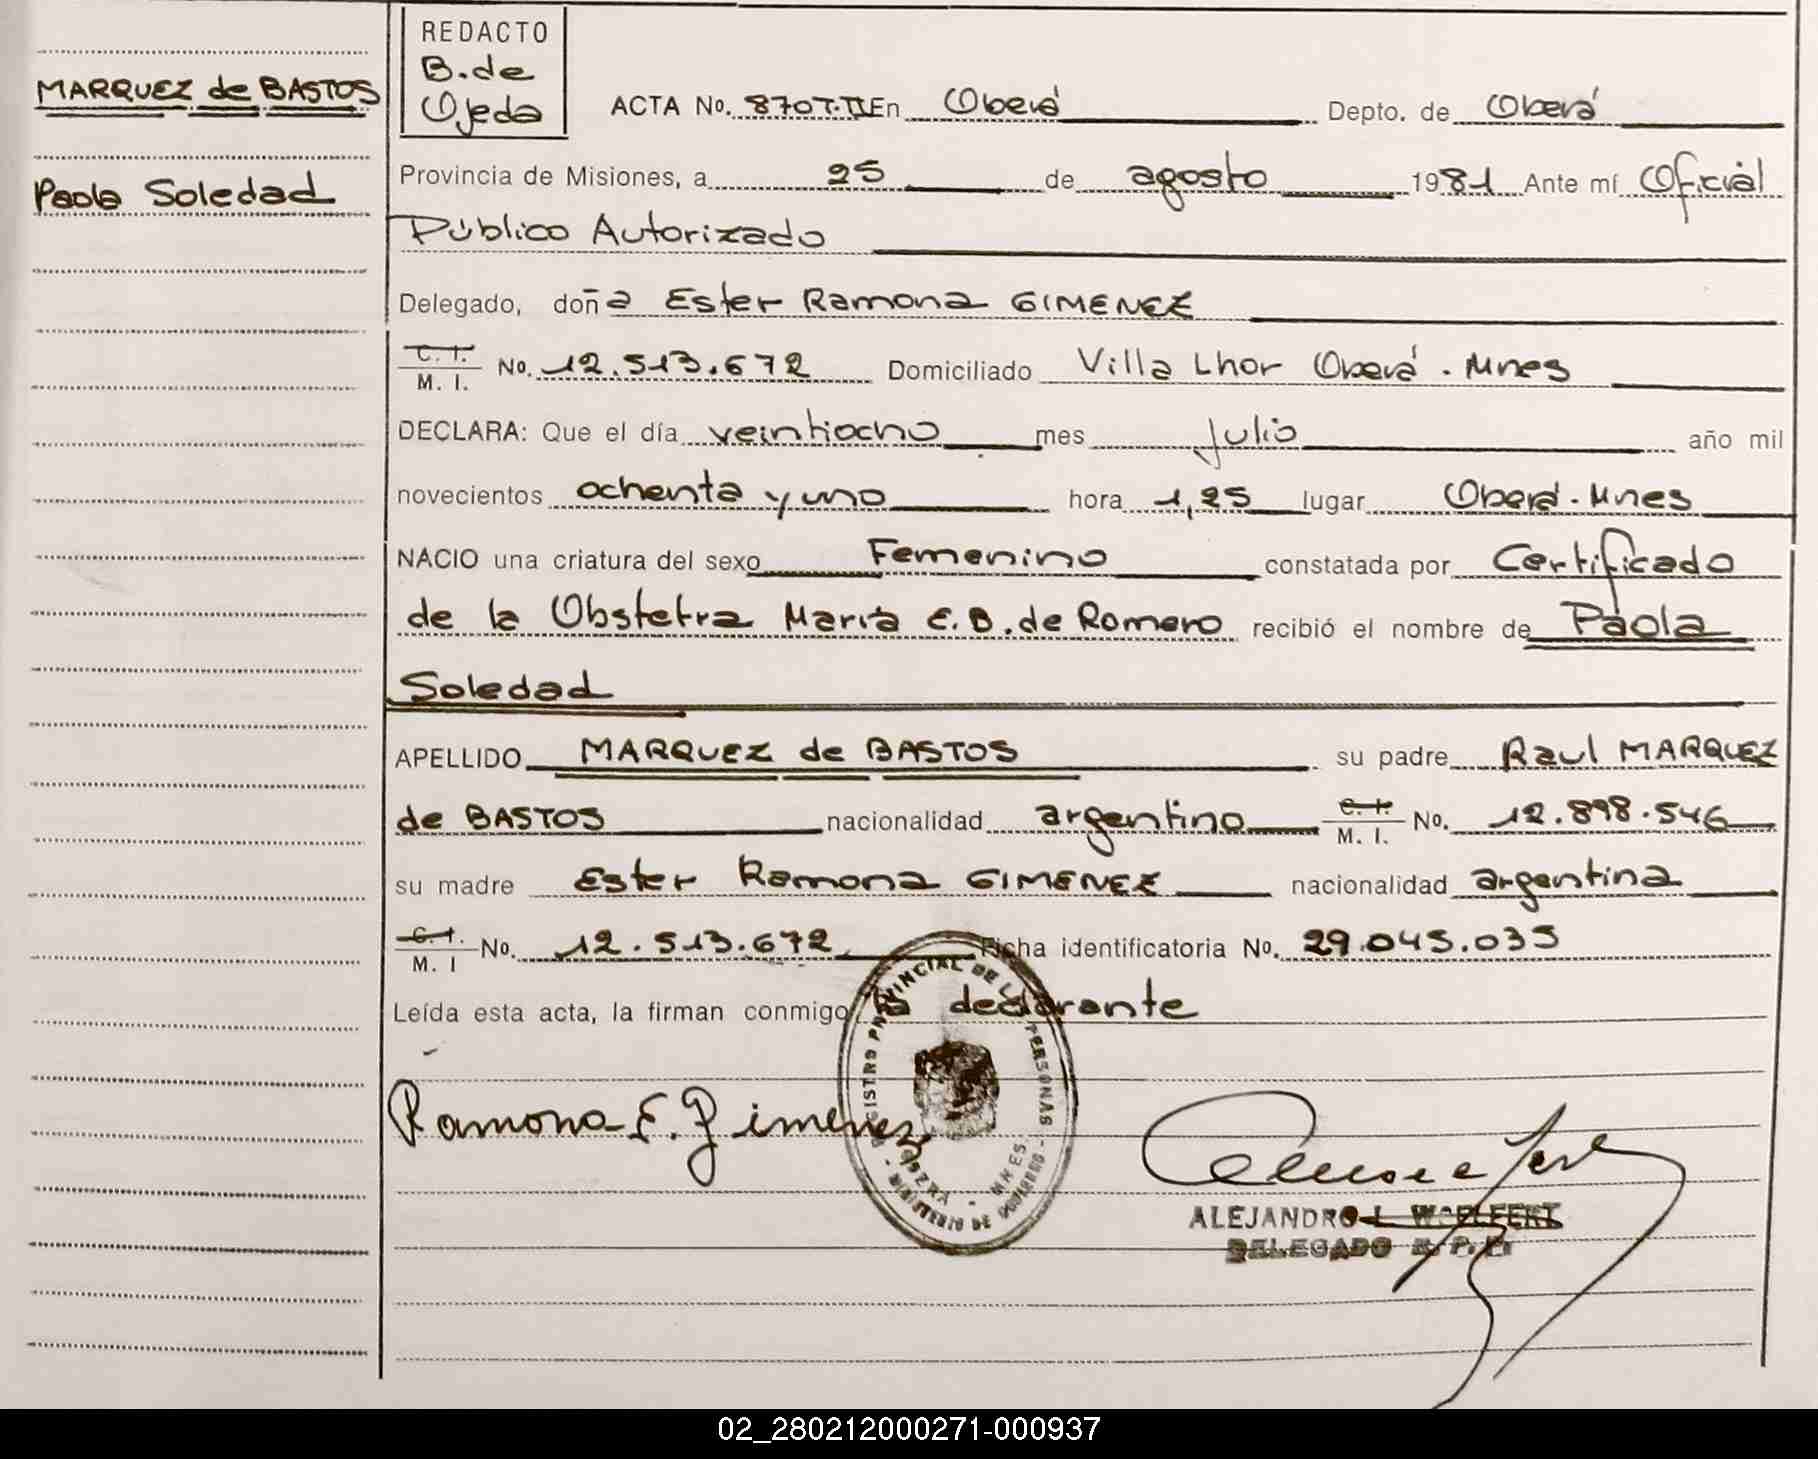 REDACTO
B. de
Ojeda
MARQUEZ de BASTOS
Paola Soledad
ACTA No. 870 T.II En Oberá Depto. de Oberá
Provincia de Misiones, a 25 de agosto 1981 Ante mí Oficial
Público Autorizado
Delegado, doña Ester Ramona GIMENEZ
C. I.
M. I. No. 12.513.672 Domiciliado Villa Lhor Oberá. Mnes
DECLARA: Que el día veintiocho mes Julio año mil
novecientos ochenta y uno hora 1,25 lugar Oberá. Mnes
NACIO una criatura del sexo Femenino constatada por Certificado
de la Obstetra María E. B. de Romero recibió el nombre de Paola
Soledad
APELLIDO MARQUEZ de BASTOS su padre Raul MARQUEZ
de BASTOS nacionalidad argentino C. I.
M. I. No. 12.898.546
su madre Ester Ramona GIMENEZ nacionalidad argentina
C. I.
M. I No. 12.513.672 Ficha identificatoria No. 29.045.035
Leída esta acta, la firman conmigo la declarante
Ramona E. Gimenez
REGISTRO PROVINCIAL DE LAS PERSONAS
OBERA - MNES
- MINISTERIO DE GOBIERNO -
ALEJANDRO L. WOELFERT
DELEGADO R. P. P.
02_280212000271-000937